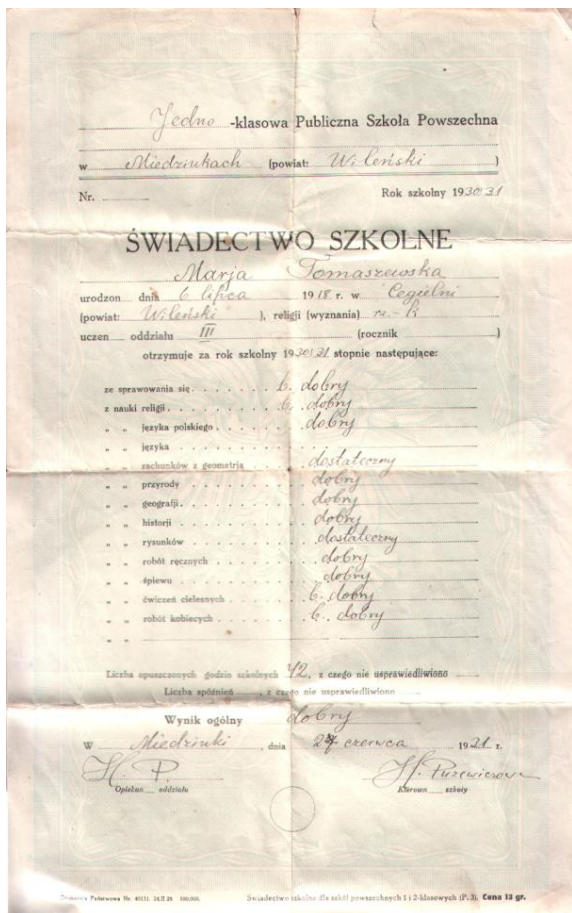 Jedno -klasowa Publiczna Szkoła Powszechna
w Miedziukach (powiat: Wileński )
Nr. Rok szkolny 1930/31
ŚWIADECTWO SZKOLNE
Marja Tomaszewska
urodzon dnia 6 lipca 1918 r. w Cegielni
(powiat: Wileński ), religji (wyznania) rz.-k
uczen oddziału III (rocznik )
otrzymuje za rok szkolny 1930/31 stopnie następujące:
ze sprawowania się b. dobry
z nauki religji b. dobry
„ „ języka polskiego dobry
„ „ języka
„ „ rachunków z geometrją dostateczny
„ „ przyrody dobry
„ „ geografji dobry
„ „ historji dobry
„ „ rysunków dostateczny
„ „ robót ręcznych dobry
„ „ śpiewu dobry
„ „ ćwiczeń cielesnych b. dobry
„ „ robót kobiecych b. dobry
„ „
Liczba opuszczonych godzin szkolnych 42, z czego nie usprawiedliwiono
Liczba spóźnień , z czego nie usprawiedliwiono
Wynik ogólny dobry
W Miedziuki , dnia czerwca 1931 r.
H. P.
Opiekun oddziału Kierown szkoły
Drukarnia Państwowa Nr. 24.II 28 100,000. Świadectwo szkolne dla szkół powszechnych 1 i 2-klasowych (P. 3). Cena 13 gr.